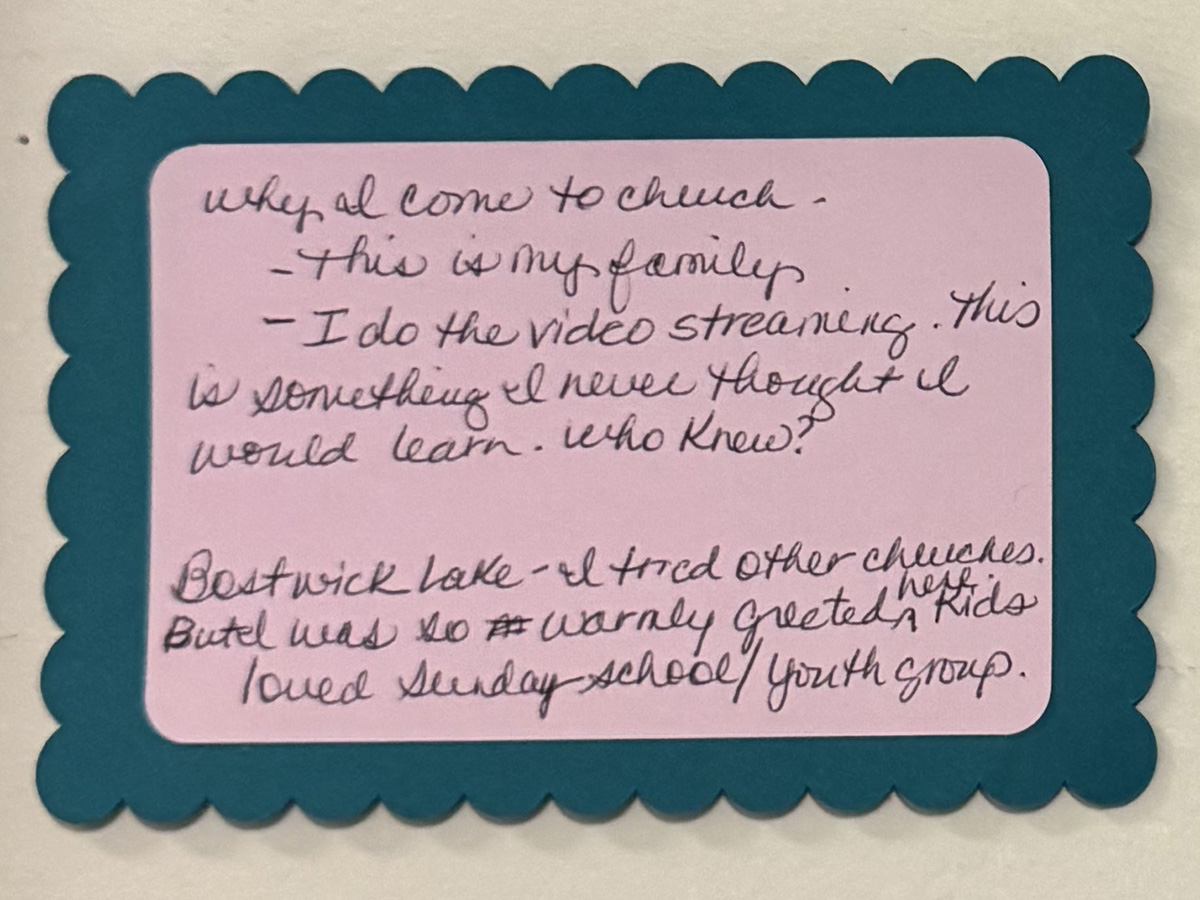 why I come to church -
- This is my family
- I do the video streaming. This
is something I never thought I
would learn. Who Knew?
Bostwick Lake - I tried other churches.
But I was so warmly greeted here. Kids
loved Sunday school/youth group.